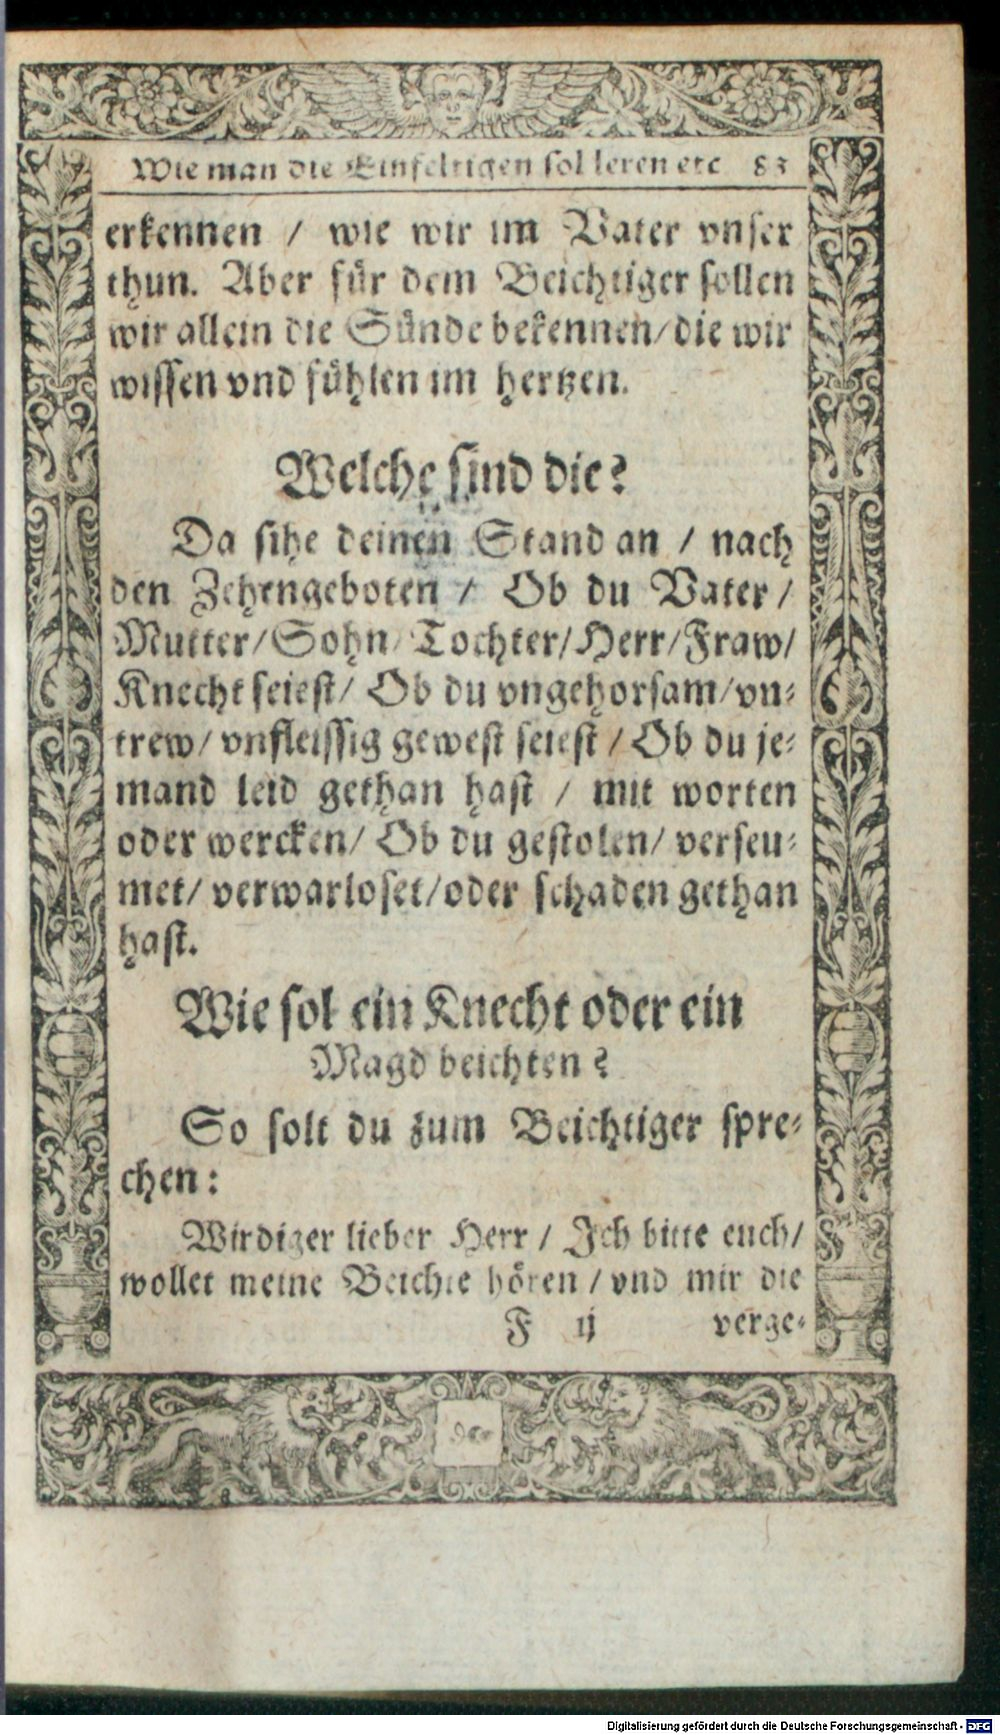 Wie man die Einfeltigen sol leren etc 83
erkennen / wie wir im Vater vnser
thun. Aber für dem Beichtiger sollen
wir allein die Sünde bekennen/die wir
wissen vnd fühlen im hertzen.
Welche sind die?
Da sihe deinen Stand an / nach
den Zehengeboten / Ob du Vater/
Mutter/Sohn/Tochter/Herr/Fraw/
Knecht seiest/ Ob du vngehorsam/vn-
trew/ vnfleissig gewest seiest / Ob du je-
mand leid gethan hast / mit worten
oder wercken/ Ob du gestolen/ verseu-
met/ verwarloset/oder schaden gethan
hast.
Wie sol ein Knecht oder ein
Magd beichten?
So solt du zum Beichtiger spre-
chen:
Wirdiger lieber Herr / Ich bitte euch/
wollet meine Beichte hören / vnd mir die
F ij verge-
Digitalisierung gefördert durch die Deutsche Forschungsgemeinschaft - DFG